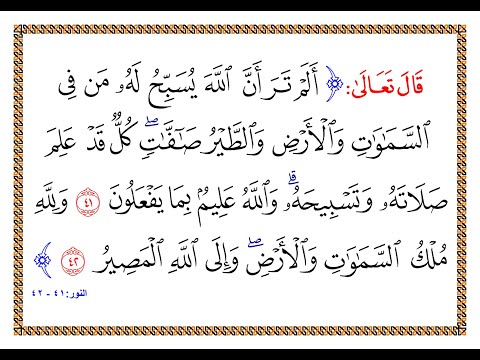 قَالَ تَعَالَىٰ: ﴿أَلَمْ تَرَ أَنَّ ٱللَّهَ يُسَبِّحُ لَهُۥ مَن فِى
ٱلسَّمَٰوَٰتِ وَٱلْأَرْضِ وَٱلطَّيْرُ صَٰٓفَّٰتٍۢ ۖ كُلٌّۭ قَدْ عَلِمَ
صَلَاتَهُۥ وَتَسْبِيحَهُۥ ۗ وَٱللَّهُ عَلِيمٌۢ بِمَا يَفْعَلُونَ ٤١ وَلِلَّهِ
مُلْكُ ٱلسَّمَٰوَٰتِ وَٱلْأَرْضِ ۖ وَإِلَى ٱللَّهِ ٱلْمَصِيرُ ٤٢ ﴾
النور: ٤١ - ٤٢